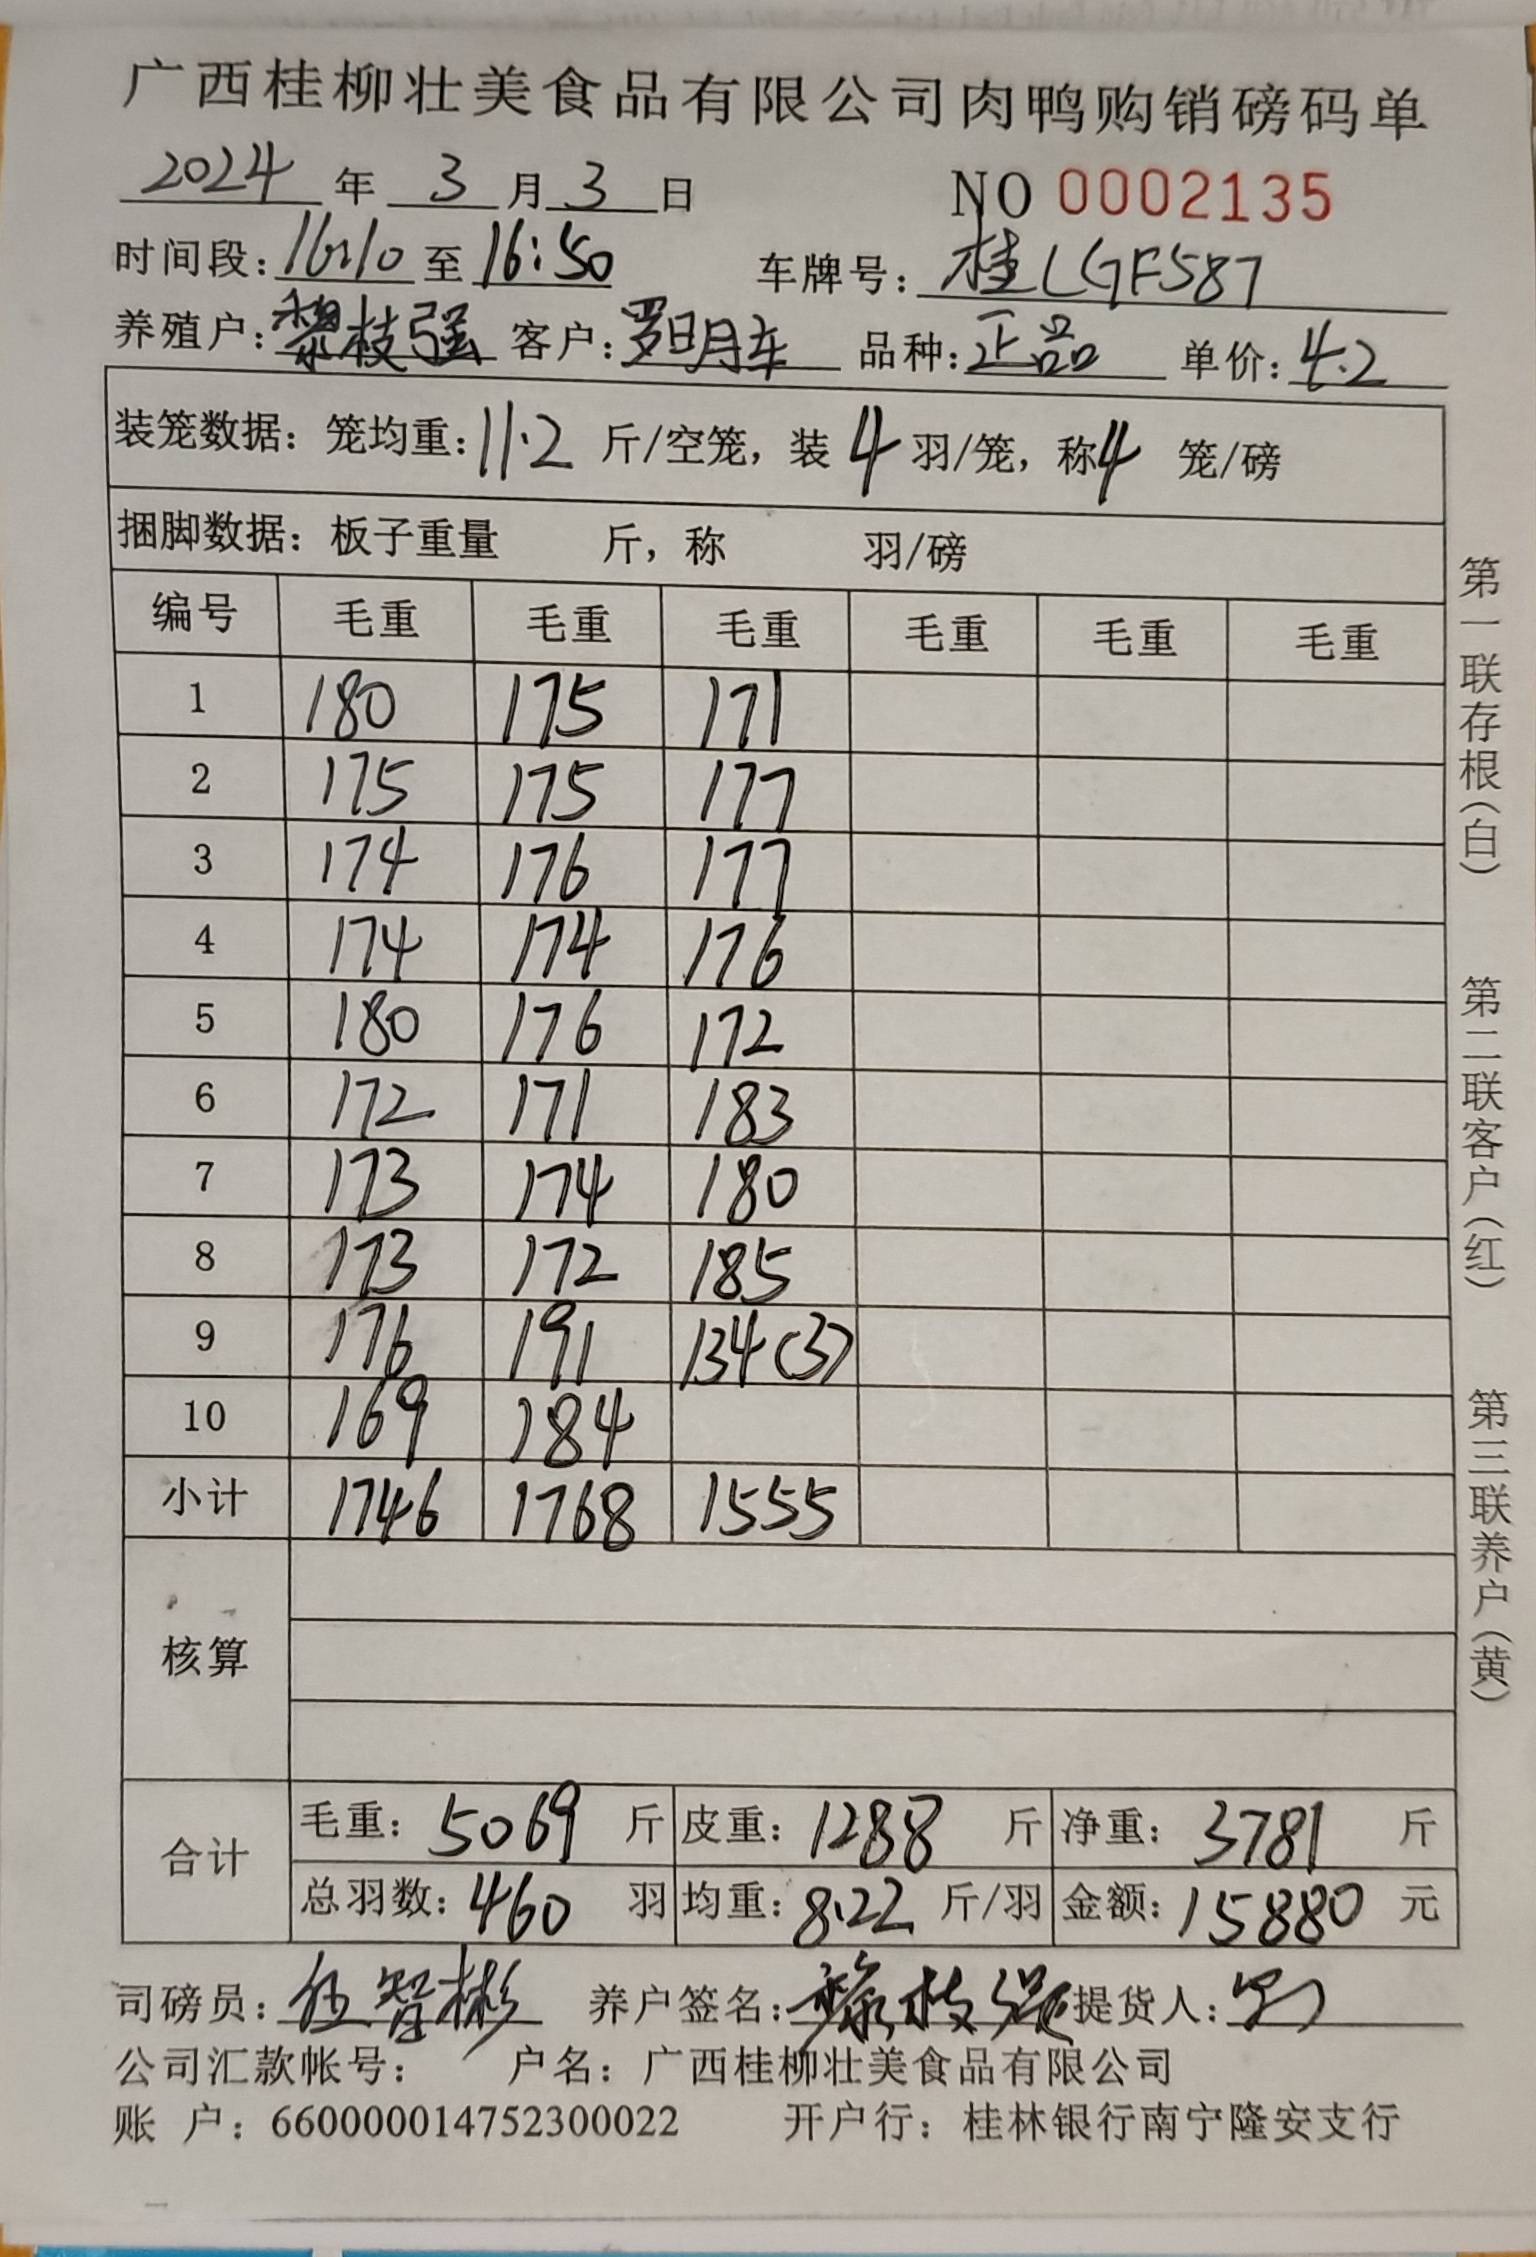 广西桂柳壮美食品有限公司肉鸭购销磅码单
2024 年 3 月 3 日 NO 0002135
时间段: 16:10 至 16:50 车牌号: 桂LGF587
养殖户: 黎枝强 客户: 罗明车 品种: 正品 单价: 4.2
装笼数据: 笼均重: 11.2 斤/空笼, 装 4 羽/笼, 称 4 笼/磅
捆脚数据: 板子重量 斤, 称 羽/磅
编号 毛重 毛重 毛重 毛重 毛重 毛重
1 180 175 171
2 175 175 177
3 174 176 177
4 174 174 176
5 180 176 172
6 172 171 183
7 173 174 180
8 173 172 185
9 176 191 134(3)
10 169 184
小计 1746 1768 1555
核算
合计
毛重: 5069 斤 皮重: 1288 斤 净重: 3781 斤
总羽数: 460 羽 均重: 8.22 斤/羽 金额: 15880 元
司磅员: 伍智彬 养户签名: 黎枝强 提货人:
公司汇款帐号: 户名: 广西桂柳壮美食品有限公司
账 户: 660000014752300022 开户行: 桂林银行南宁隆安支行
第一联存根(白)
第二联客户(红)
第三联养户(黄)